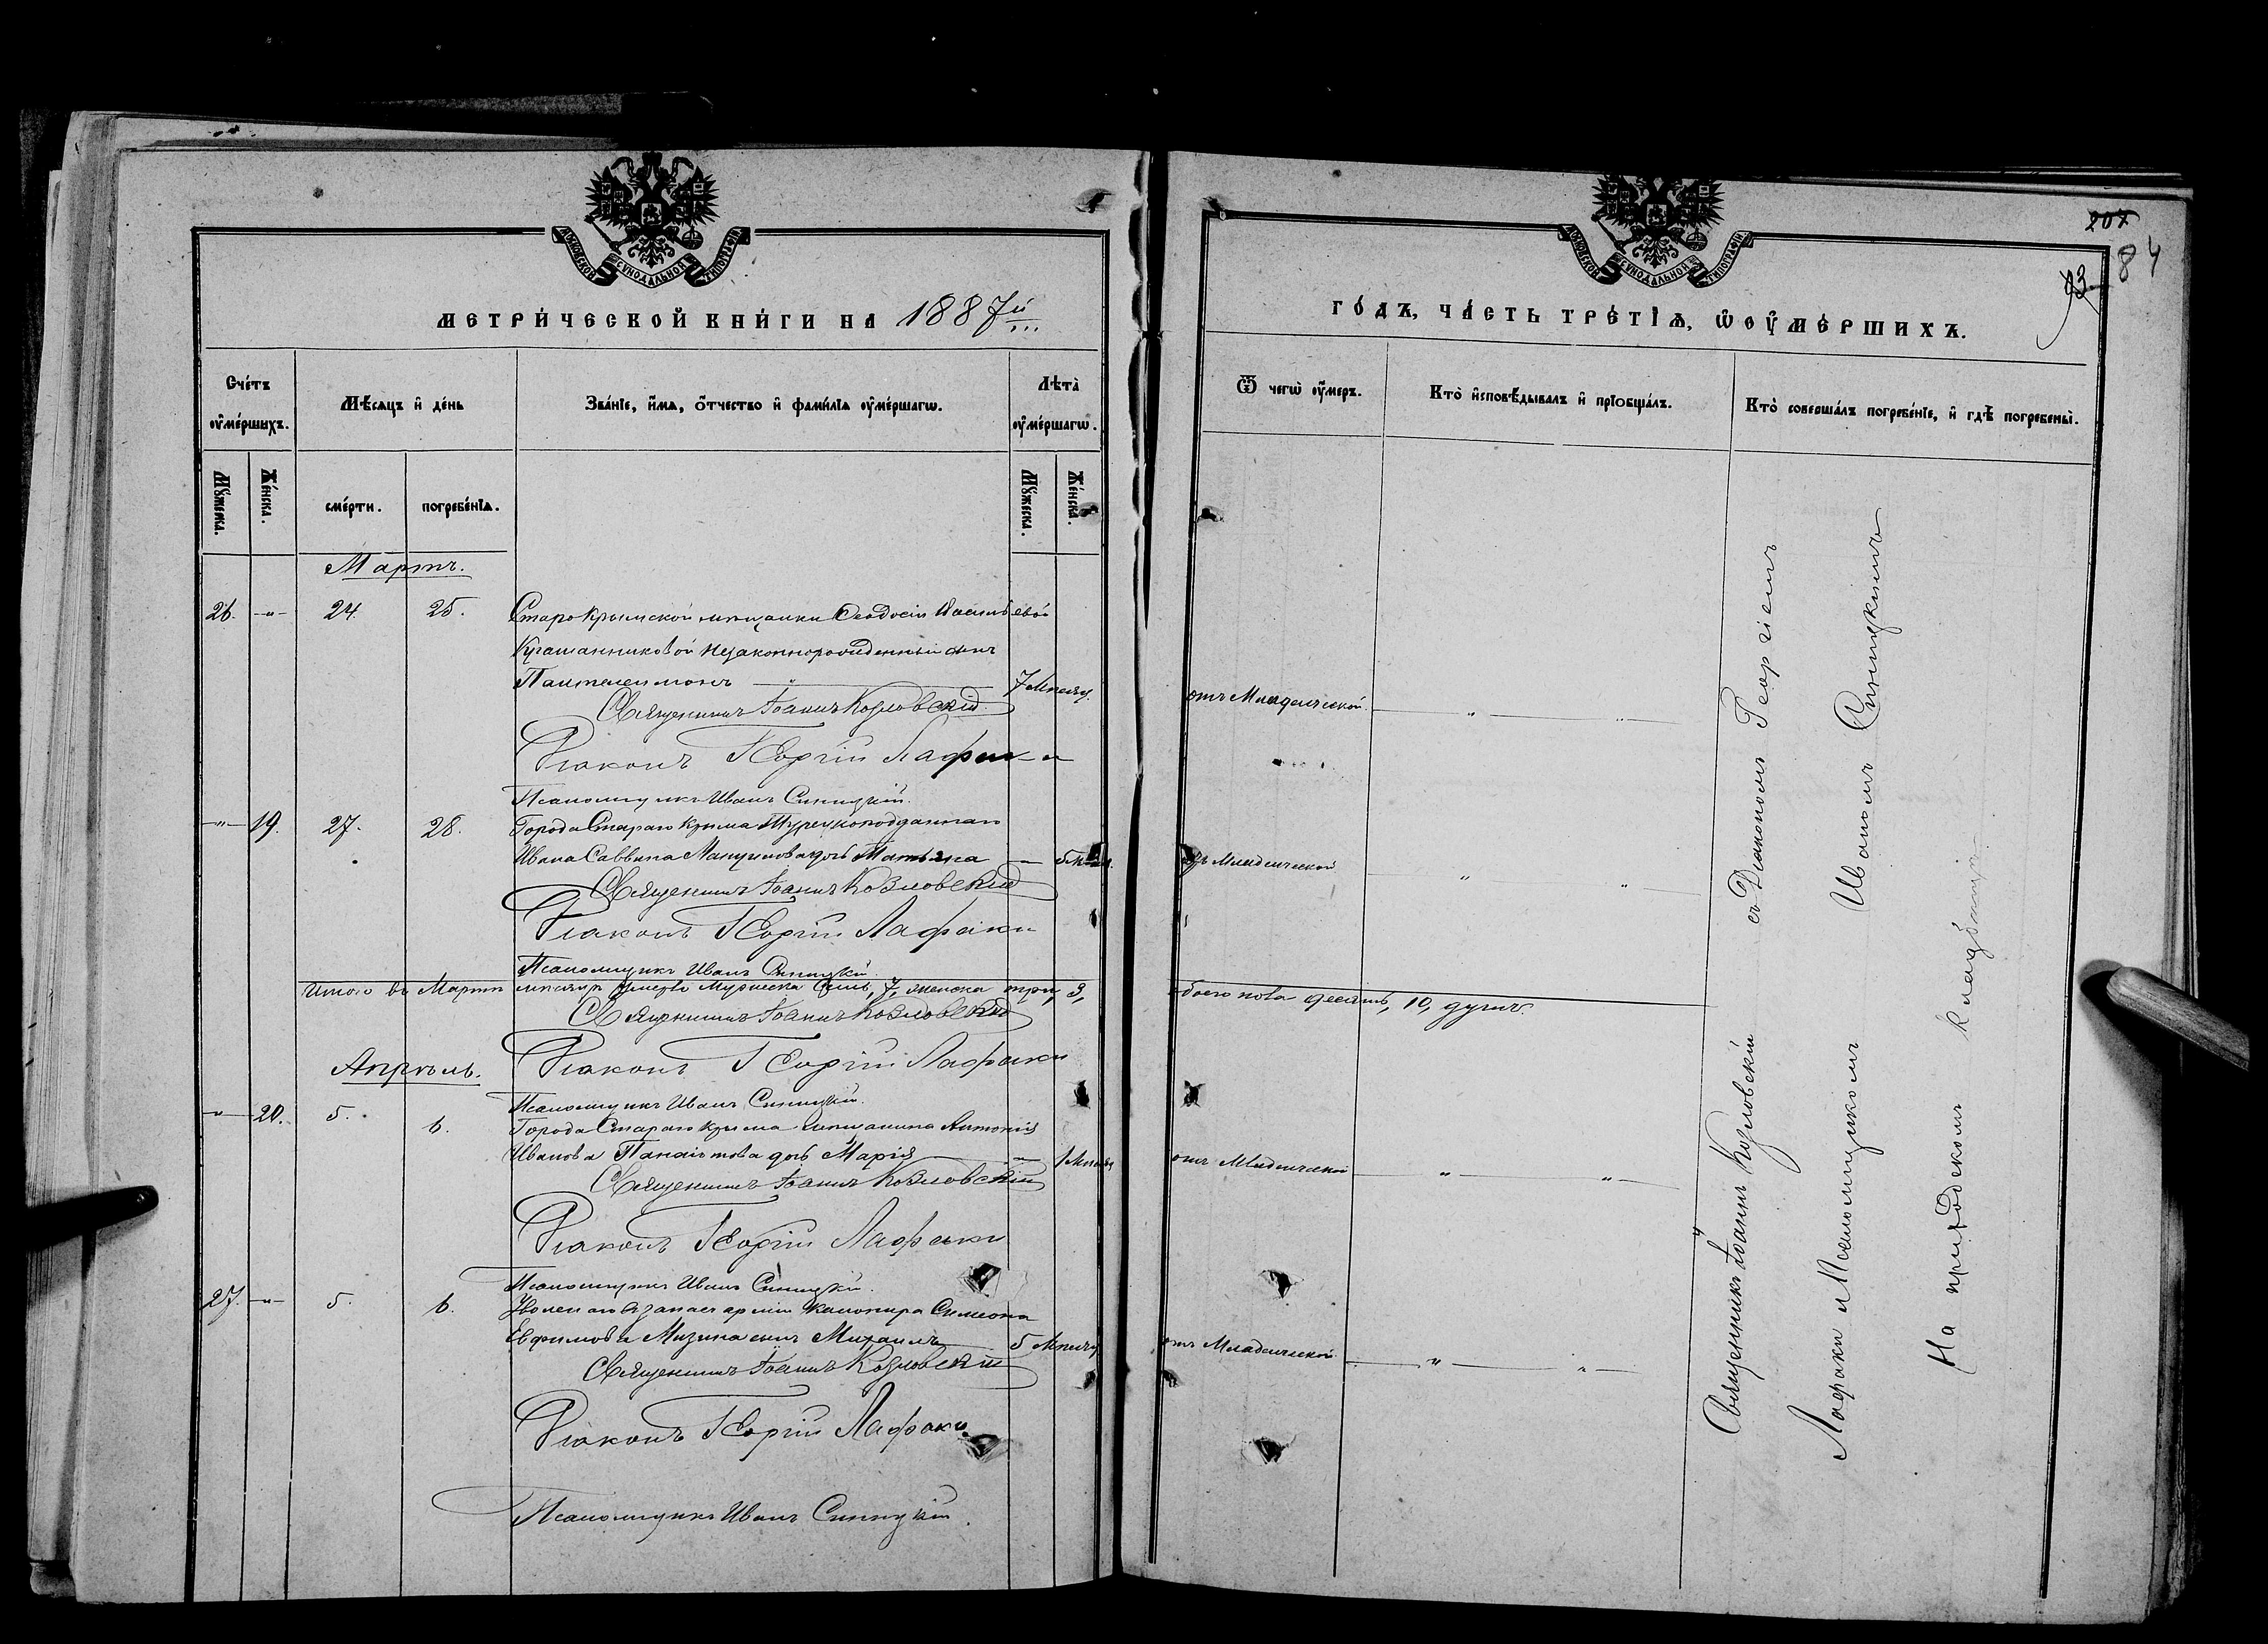 МОСКОВСКОЙ СѴНОДАЛЬНОЙ ТИПОГРАФІИ
МЕТРИ́ЧЕСКОЙ КНИ́ГИ НА 1887й
Сче́тъ ᲂу҆ме́ршихъ.
Мѣ́сяцъ и҆ де́нь
Зва́нїе, и҆́мѧ, ѻ҆́тчество и҆ фами́лїѧ ᲂу҆ме́ршагѡ.
Лѣ́та ᲂу҆ме́ршагѡ.
Мꙋ́жеска.
Же́нска.
сме́рти.
погребе́нїѧ.
Мꙋ́жеска.
Же́нска.
Мартъ.
26. -"- 24. 25. Старокрымской мѣщанки Ѳеодосіи Васильевой
незаконнорожденный сынъ
Пантелеимонъ 7 Мѣсяц.
Священникъ Іоаннъ Козловскій
Діаконъ Георгій Лафаки
Псаломщикъ Иванъ Синицкій.
-"- 19. 27. 28. Города Стараго Крыма Турецкоподданнаго
Ивана Саввина дочь
Священникъ Іоаннъ Козловскій
Діаконъ Георгій Лафаки
Псаломщикъ Иванъ Синицкій
Итого въ Мартѣ мѣсяцѣ умерло Мужеска Семь, 7, женска три, 3,
Священникъ Іоаннъ Козловскій
Діаконъ Георгій Лафаки
Апрѣль.
Псаломщикъ Иванъ Синицкій.
-"- 20. 5. 6. Города Стараго Крыма мѣщанина Антонія
Иванова дочь Марія 1 Мѣсяц
Священникъ Іоаннъ Козловскій
Діаконъ Георгій Лафаки
Псаломщикъ Иванъ Синицкій.
27. -"- 5. 6. въ запасъ арміи канонира Симеона
Евфимова Мизина сынъ Михаилъ 5 Мѣсяц
Священникъ Іоаннъ Козловскій
Діаконъ Георгій Лафаки
Псаломщикъ Иванъ Синицкій.
МОСКОВСКОЙ СѴНОДАЛЬНОЙ ТИПОГРАФІИ
207
84
93
ГО́ДЪ, ЧА́СТЬ ТРЕ́ТЇѦ, Ѡ҆ ᲂУ҆МЕ́РШИХЪ.
Ѿ чегѡ̀ ᲂу҆́меръ.
Кто̀ и҆сповѣ́дывалъ и҆ прїѡбща́лъ.
Кто̀ соверша́лъ погребе́нїе, и҆ гдѣ̀ погребены̀.
отъ Младенческой
отъ Младенческой
обоего пола десять, 10, душъ.
отъ Младенческой
отъ Младенческой
Священникъ Іоаннъ Козловскій съ Діакономъ Георгіемъ
Лафаки и Псаломщикомъ Иваномъ Синицкимъ
На приходскомъ кладбищѣ